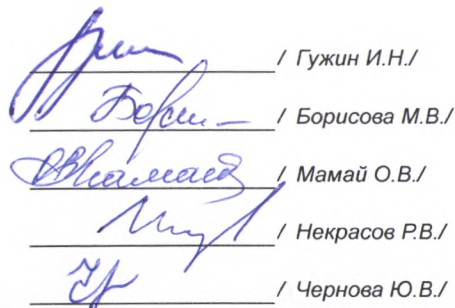 / Гужин И.Н./
/ Борисова М.В./
/ Мамай О.В./
/ Некрасов Р.В./
/ Чернова Ю.В./